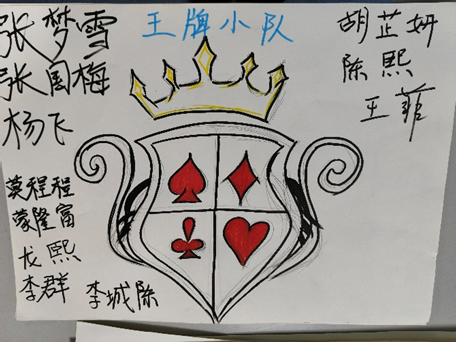 王牌小队
张梦雪
张国梅
杨飞
莫程程
蒙隆富
龙熙
李群
李城陈
胡芷妍
陈熙
王菲